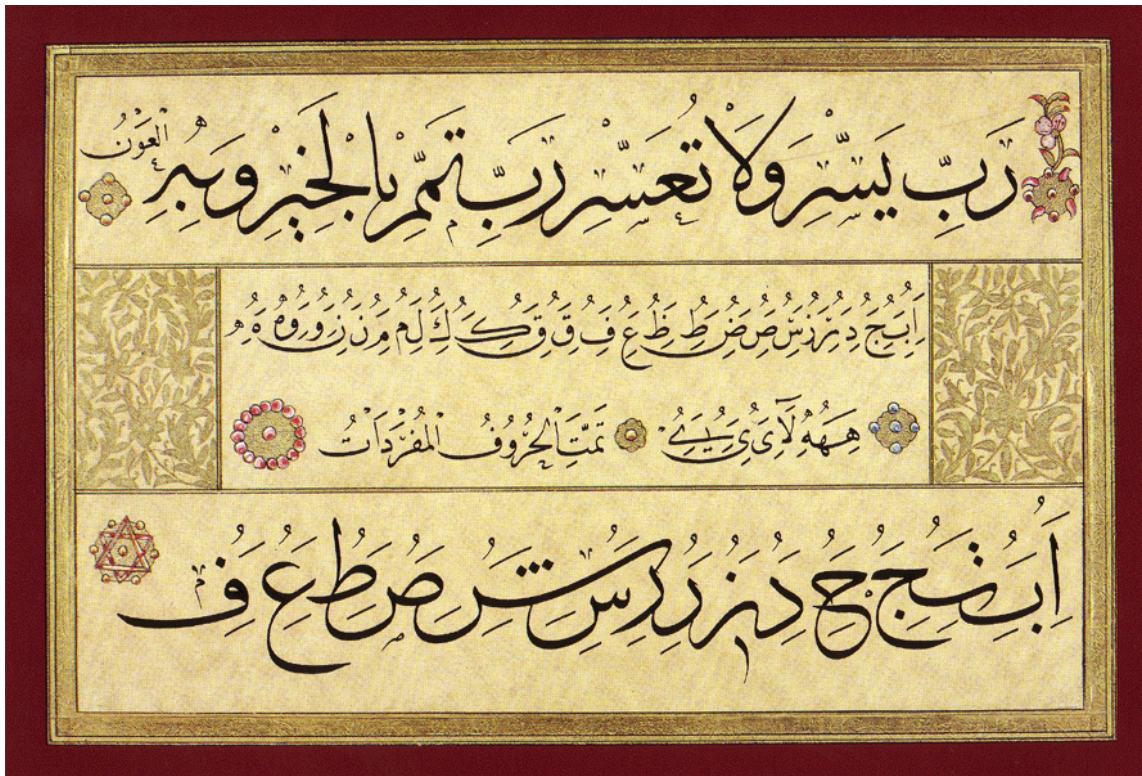 رَبِّ يَسِّرْ وَلَا تُعَسِّرْ رَبِّ تَمِّمْ بِالْخَيْرِ وَبِهِ الْعَوْنُ
ا ب ج د ر ز س ص ض ط ظ ع ف ق ق ك ك ل م م ن ن و و ه ه
ههه لا ى ى ے تَمَّتِ الْحُرُوفُ الْمُفْرَدَاتُ
ا ب ث ج ح د ز ر ر س ش ص ط ع ف